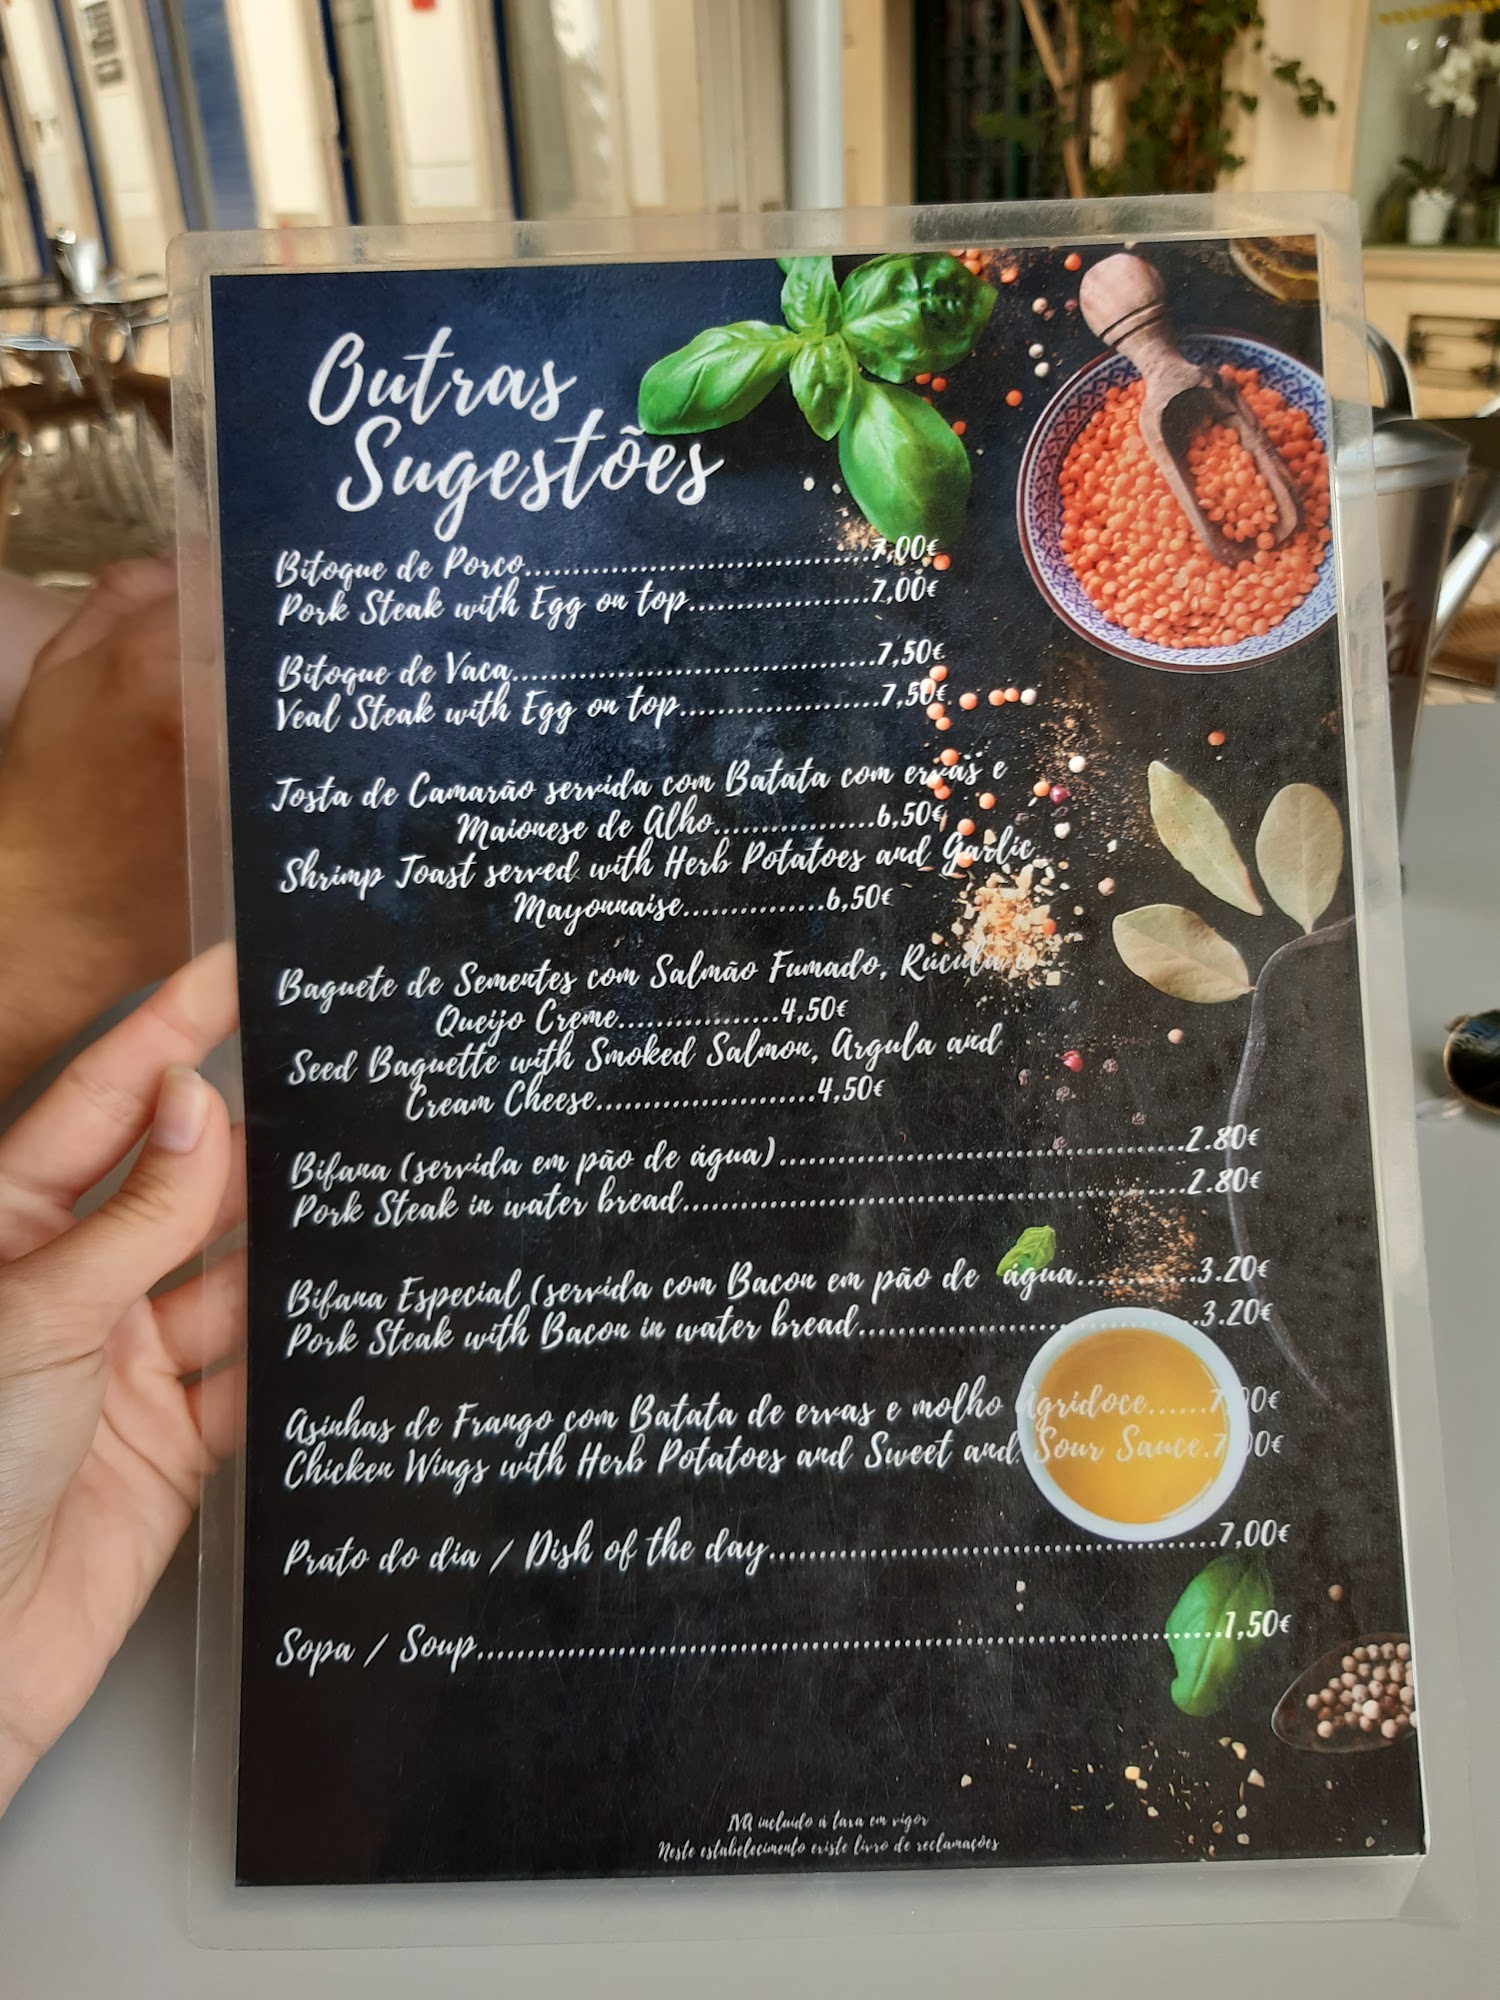 Outras
Sugestões
Bitoque de Porco..............................7,00€
Pork Steak with Egg on top..................7,00€
Bitoque de Vaca................................7,50€
Veal Steak with Egg on top....................7,50€
Tosta de Camarão servida com Batata com ervas e
Maionese de Alho................6,50€
Shrimp Toast served with Herb Potatoes and Garlic
Mayonnaise..............6,50€
Baguete de Sementes com Salmão Fumado, Rúcula e
Queijo Creme................4,50€
Seed Baguette with Smoked Salmon, Argula and
Cream Cheese......................4,50€
Bifana (servida em pão de água)........................................2.80€
Pork Steak in water bread..................................................2.80€
Bifana Especial (servida com Bacon em pão de água............3.20€
Pork Steak with Bacon in water bread..................................3.20€
Asinhas de Frango com Batata de ervas e molho Agridoce......7,00€
Chicken Wings with Herb Potatoes and Sweet and Sour Sauce.7,00€
Prato do dia / Dish of the day.............................................7,00€
Sopa / Soup..........................................................................1,50€
IVA incluído á taxa em vigor
Neste estabelecimento existe livro de reclamações